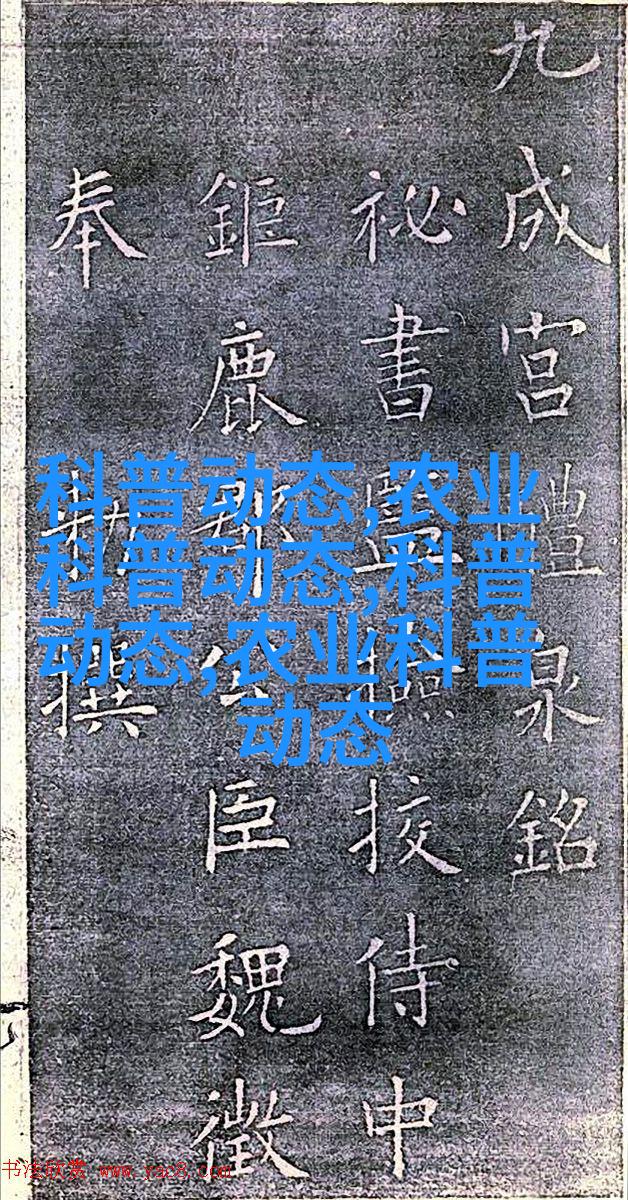 九成宫醴泉銘
祕書監挍侍中
鉅鹿郡公臣魏徵
奉勑撰
科普动态,农业
科普动态,科普
动态,农业科普
动态
书法欣赏 www.yac8.com